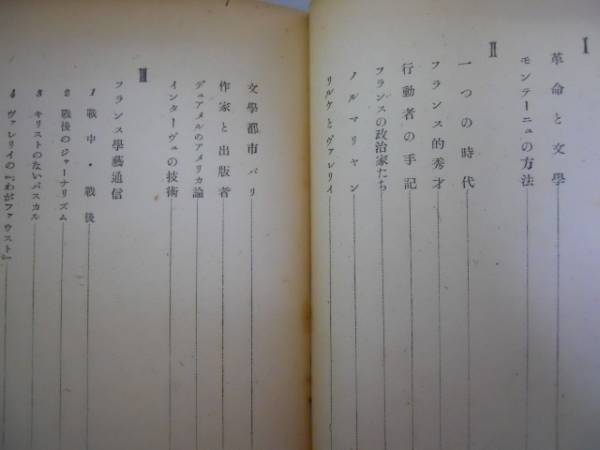 Ⅰ
革命と文學
モンテーニュの方法
Ⅱ
一つの時代
フランス的秀才
行動者の手記
フランスの政治家たち
ノルマリヤン
リルケとヴァレリイ
文學都市パリ
作家と出版者
デュアメルのアメリカ論
インターヴュの技術
Ⅲ
フランス學藝通信
1 戰中・戰後
2 戰後のジャーナリズム
3 キリストのないパスカル
4 ヴァレリイの『わがファウスト』